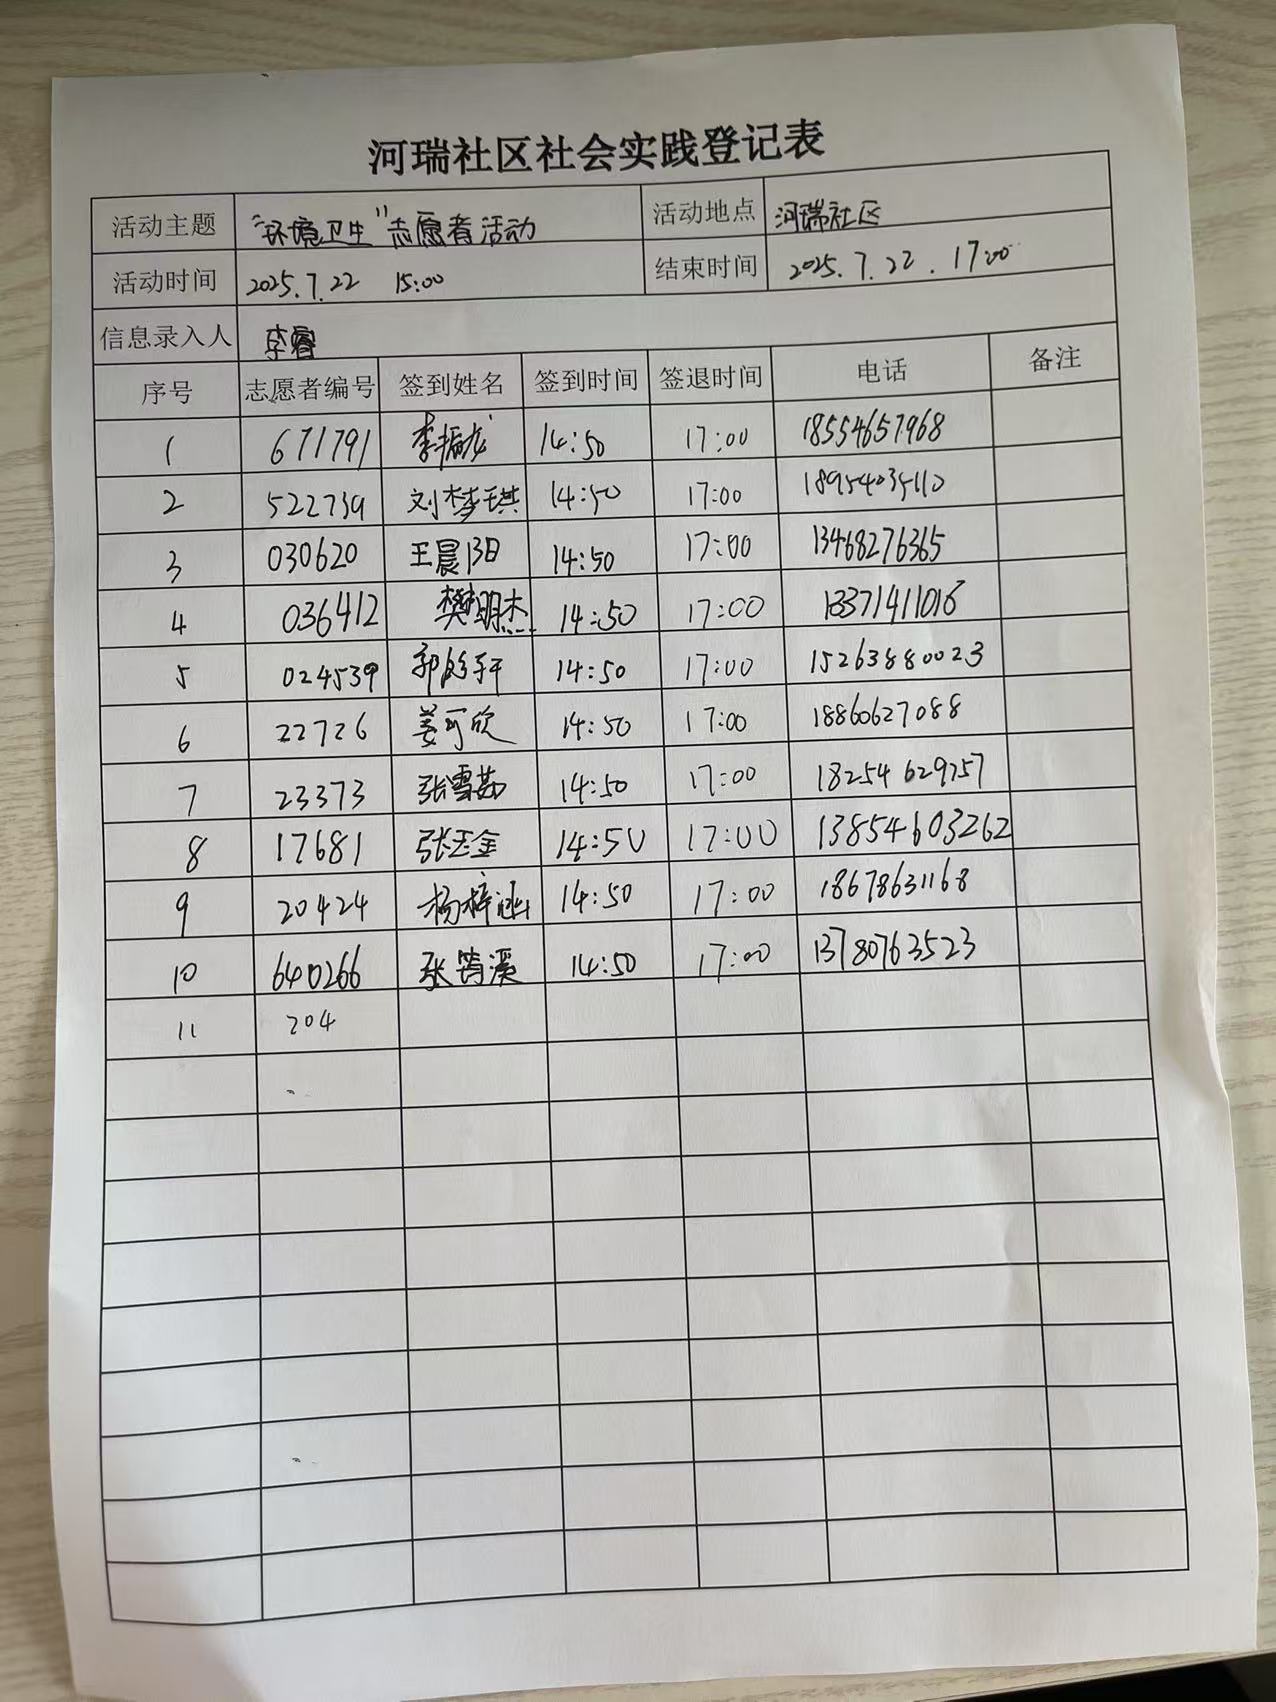 河瑞社区社会实践登记表
活动主题 "环境卫生"志愿者活动 活动地点 河瑞社区
活动时间 2025.7.22 15:00 结束时间 2025.7.22.17:00
信息录入人 李睿
序号 志愿者编号 签到姓名 签到时间 签退时间 电话 备注
1 671791 李振龙 14:50 17:00 18554657968
2 522739 刘梦琪 14:50 17:00 18954035110
3 030620 王晨阳 14:50 17:00 13468276365
4 036412 樊明杰 14:50 17:00 13371411016
5 024539 郭 轩 14:50 17:00 15263880023
6 22726 姜可欣 14:50 17:00 18860627088
7 23373 张雪茹 14:50 17:00
8 17681 张玉金 14:50 17:00 13854603262
9 20424 杨梓涵 14:50 17:00 18678631168
10 640266 张筠溪 14:50 17:00 13780763523
11 204